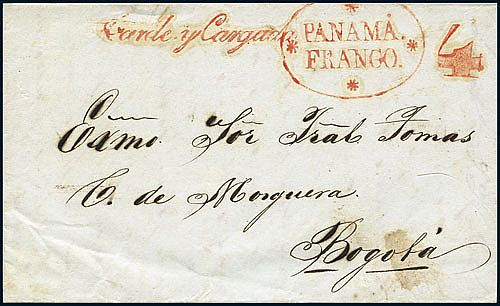 Tarde y Cargada
PANAMÁ.
FRANCO.
4
Exmo. Sor Jral Tomas
C. de Mosquera.
Bogotá